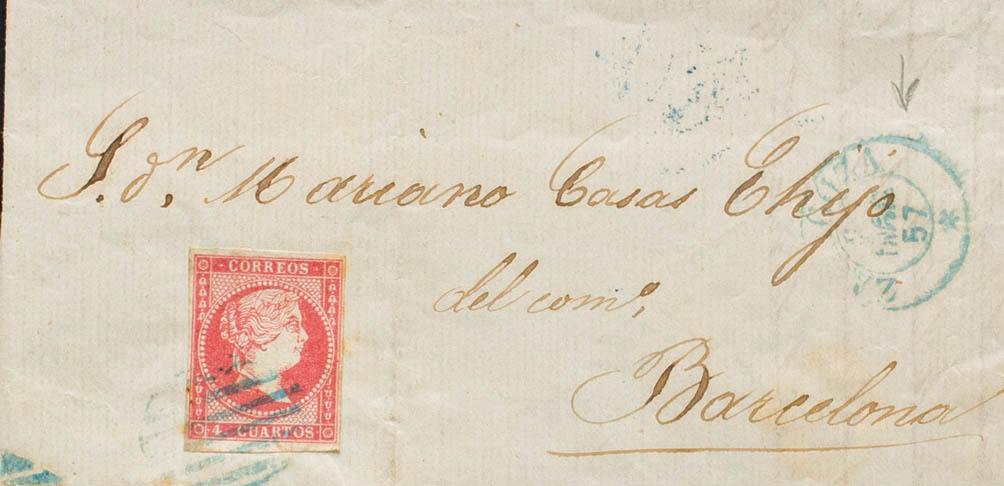 S. Dn. Mariano Casas Ehijo
del como.
Barcelona
CORREOS
4 CUARTOS
57